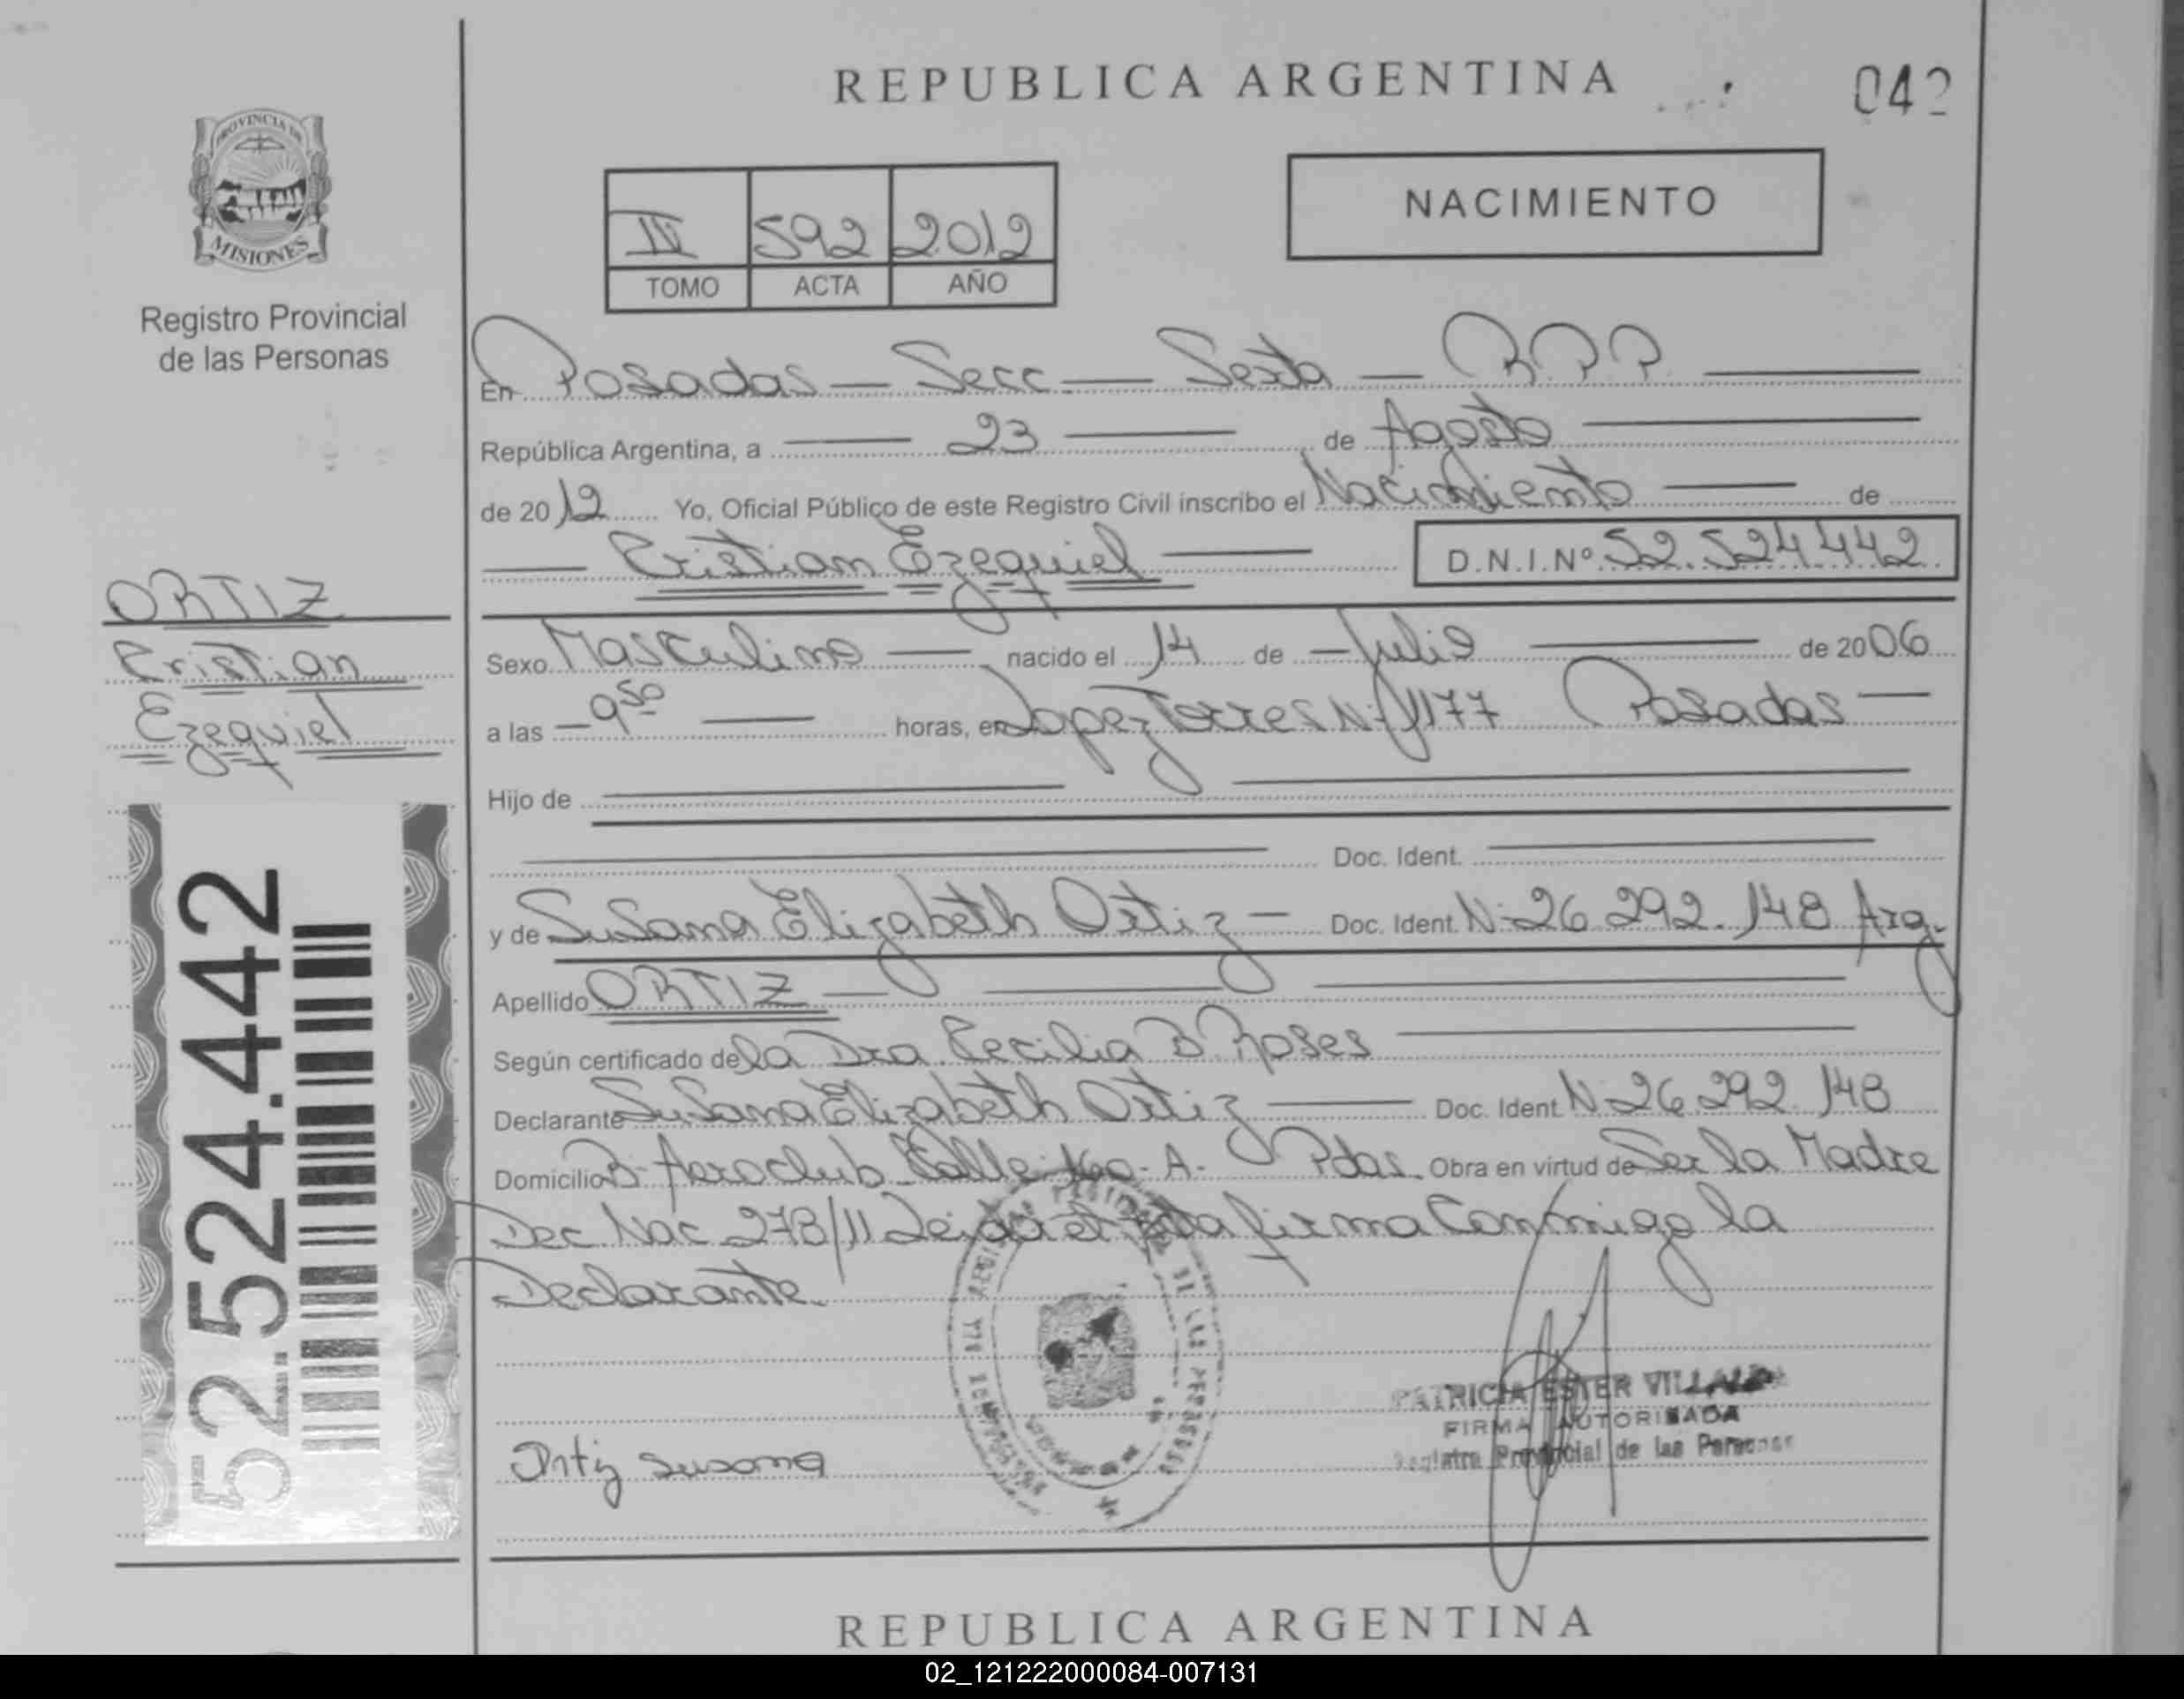 REPUBLICA ARGENTINA
042
PROVINCIA DE
MISIONES
Registro Provincial
de las Personas
NACIMIENTO
592 2012
TOMO ACTA AÑO
En Posadas — Secc — Sexta — R.P.P.
República Argentina, a — 23 — de Agosto
de 2012 Yo, Oficial Público de este Registro Civil inscribo el Nacimiento — de
Cristian Ezequiel — D.N.I.Nº 52.524.442
ORTIZ
Cristian
Ezequiel
Sexo Masculino — nacido el 14 de — Julio — de 2006
a las — 9 50 — horas, en Lopez Torres Nº 1177 Posadas —
Hijo de
Doc. Ident.
y de Susana Elizabeth Ortiz — Doc. Ident. Nº 26.292.148 Arg.
Apellido ORTIZ —
Según certificado de la Dra. Cecilia B. Roses
Declarante Susana Elizabeth Ortiz — Doc. Ident. Nº 26.292.148
Domicilio Bº Aeroclub Calle A- Pdas. Obra en virtud de Ser la Madre
Dec Nac 278/11 Leida el Acta firma Conmigo la
Declarante.
52.524.442
Ortiz Susana
PATRICIA ESTER
FIRMA AUTORISADA
Registro Provincial de las Personas
REPUBLICA ARGENTINA
02_121222000084-007131